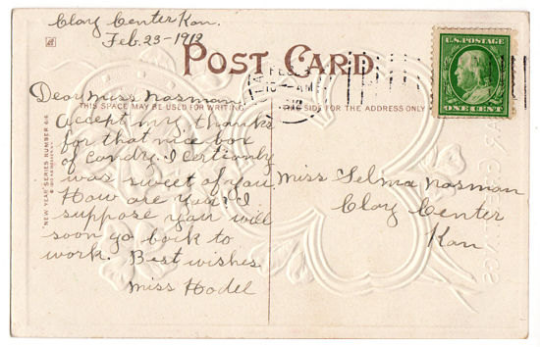 Clay Center Kan.
Feb. 23-1912
POST CARD
U.S. POSTAGE
ONE CENT
THIS SPACE MAY BE USED FOR WRITING
SIDE FOR THE ADDRESS ONLY
Dear Miss Nasman:
Accept my thanks
for that nice box
of candy. I certianly
was sweet of you.
How are you? I
suppose you will
soon go back to
work. Best wishes
Miss Hodel
Miss Selma Nasman
Clay Center
Kan
"NEW YEAR" SERIES NUMBER